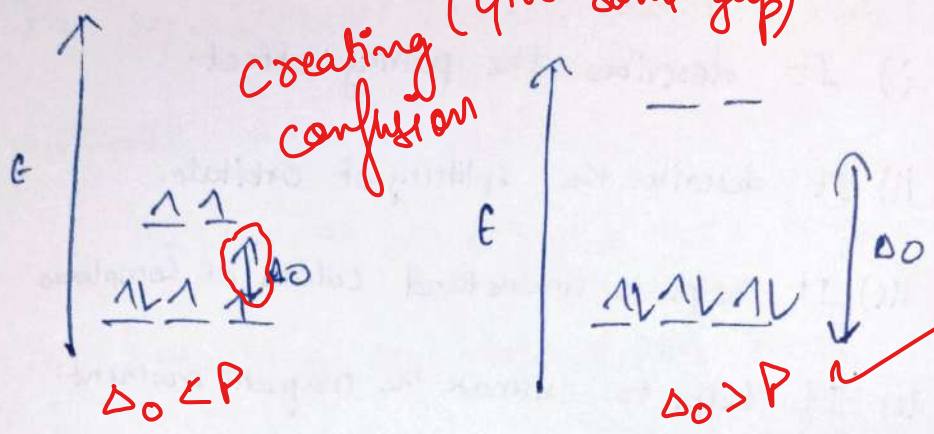 (Give some gap)
creating
confusion
E
ΔO
Δo < P
E
ΔO
Δo > P